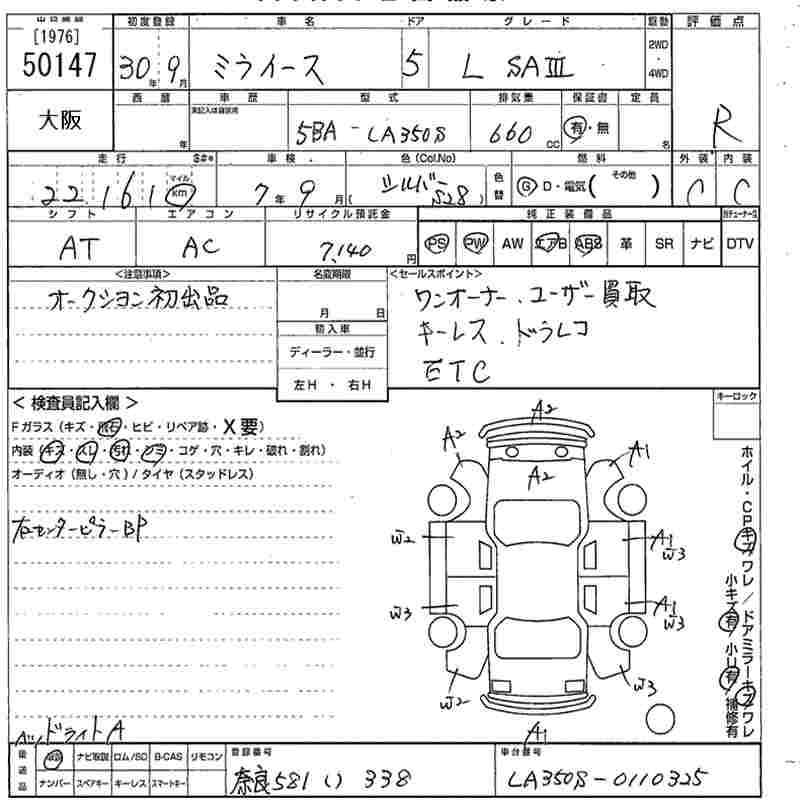 [1976]
50147
初度登録 車名 ドア グレード 駆動 評価点
30年 9月 ミライース 5 L SAⅢ 2WD・4WD
大阪
西暦 車歴 型式 排気量 保証書 定員
年 5BA-LA350S 660 CC 有・無 名
R
走行 S#* 車検 色(Col.No) 燃料 外装 内装
22,161 マイル km 7年 9月 シルバー S28 色替 G D・電気( その他 ) C C
シフト エアコン リサイクル預託金 純正装備品
AT AC 7,140円 PS PW AW エアB ABS 革 SR ナビ DTV
<注意事項> 名変期限 <セールスポイント>
オークション初出品
月 日
輸入車
ディーラー・並行
左H・右H
ワンオーナー、ユーザー買取
キーレス、ドラレコ
ETC
キーロック
<検査員記入欄>
Fガラス(キズ・飛石・ヒビ・リペア跡・X要)
内装(キズ・スレ・汚れ・シミ・コゲ・穴・キレ・破れ・割れ)
オーディオ(無し・穴)/タイヤ(スタッドレス)
右センターピラーBP
A2
A2 A1
A2
W2 A1 W3
W3 A1 W3
W2 W3
A1
ホイル・CPキズワレ/ドアミラーキズワレ
小キズ有 小U有 補修有
ヘッドライトA
後送品 取説 ナビ取説 ロム/SD B-CAS リモコン
ナンバー スペアキー キーレス スマートキー
登録番号
奈良 581 い 338
車台番号
LA350S-0110325